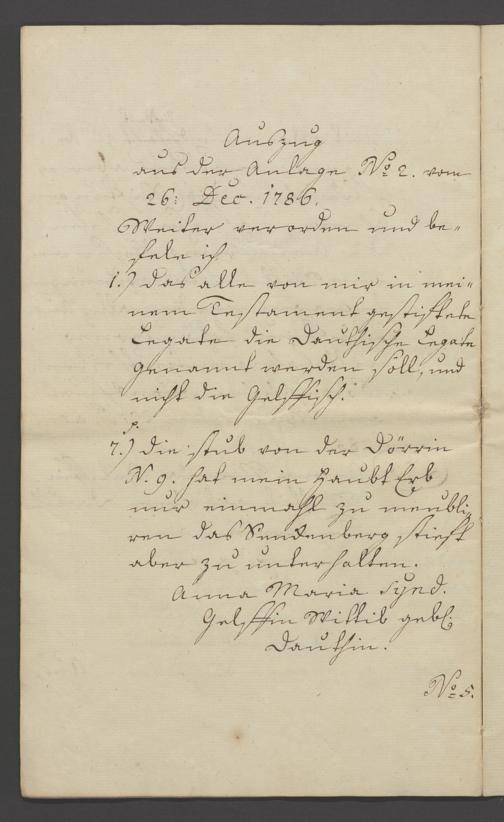 Auszug
aus der Anlage No 2. vom
26: Dec. 1786.
Weiter verorden und be=
fele ich
1.) das alle von mir in mei=
nem Testament gestiftete
Legate die Dauthische Legate
genannt werden soll, und
nicht die Gelffisch.
7.) die stub von der Dörrin
N. 9. hat mein Haubt Erb
nur einmahl zu meubli=
ren das Senckenberg stieft
aber zu unterhalten.
Anna Maria
Gelffin Wittib geb.
Dauthin.
No 5.